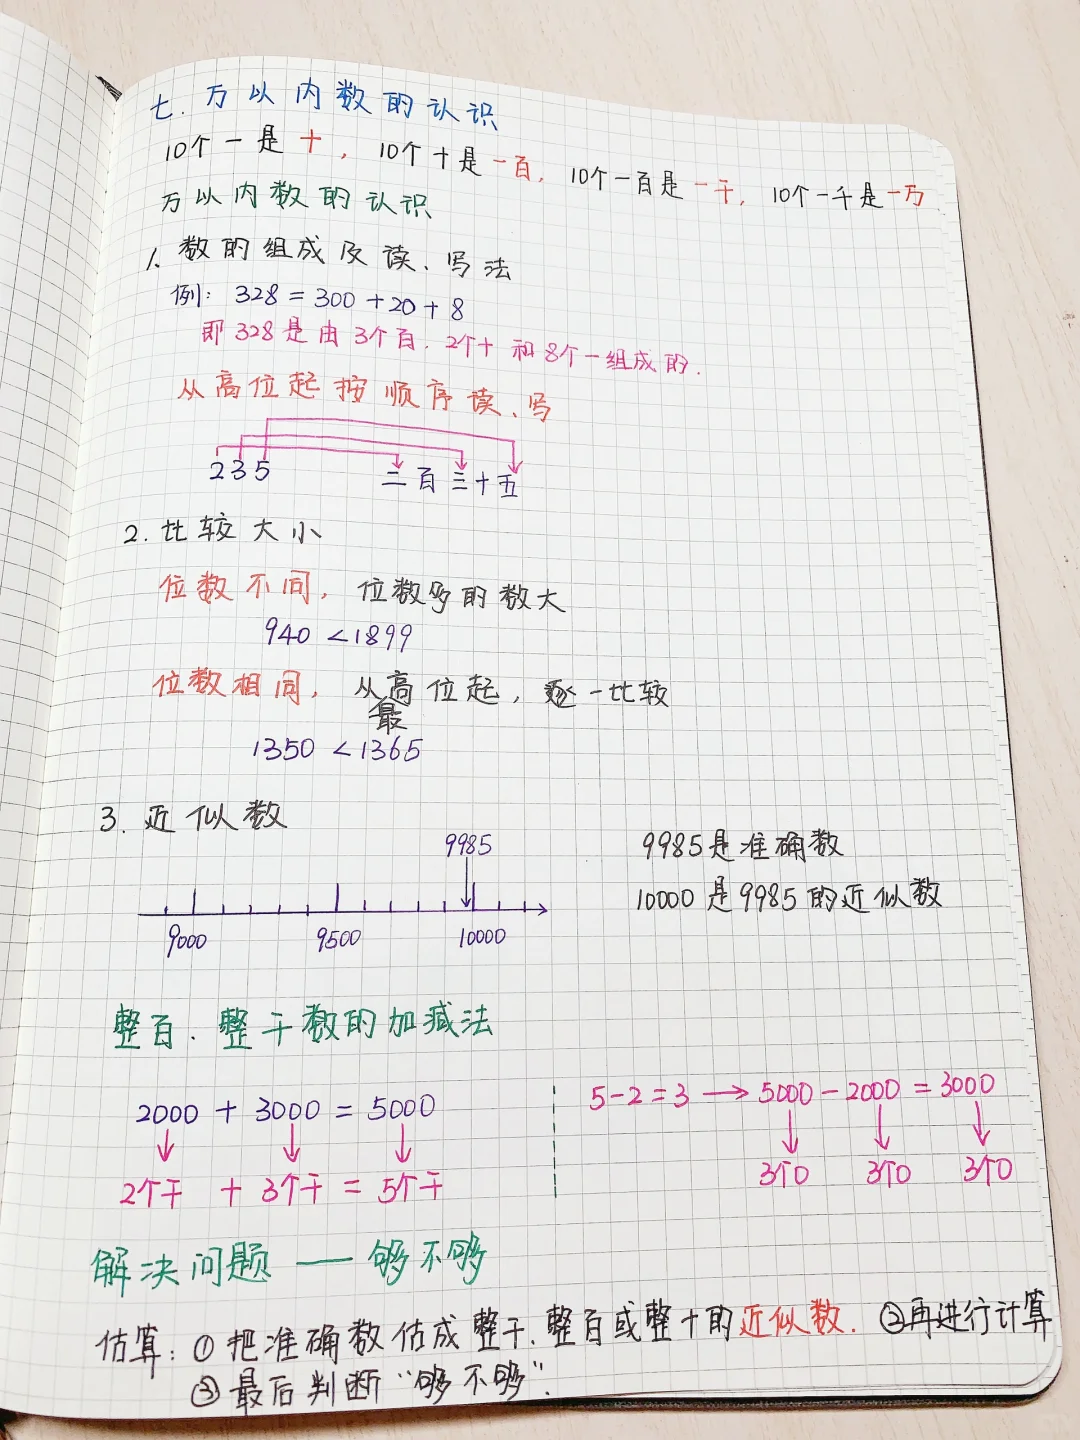 七. 万以内数的认识
10个一是十, 10个十是一百, 10个一百是一千, 10个一千是一万
万以内数的认识
1、数的组成及读、写法
例: 328=300+20+8
即328是由3个百、2个十和8个一组成的.
从高位起按顺序读、写
235 二百三十五
2. 比较大小
位数不同, 位数多的数大
940 < 1899
位数相同, 从高位起, 逐一比较
最
1350 < 1365
3. 近似数
9985
9000 9500 10000
9985是准确数
10000是9985的近似数
整百、整千数的加减法
2000 + 3000 = 5000
2个千 + 3个千 = 5个千
5-2=3 → 5000-2000=3000
3个0 3个0 3个0
解决问题 —— 够不够
估算: ①把准确数估成整千、整百或整十的近似数. ②再进行计算
③最后判断“够不够”.